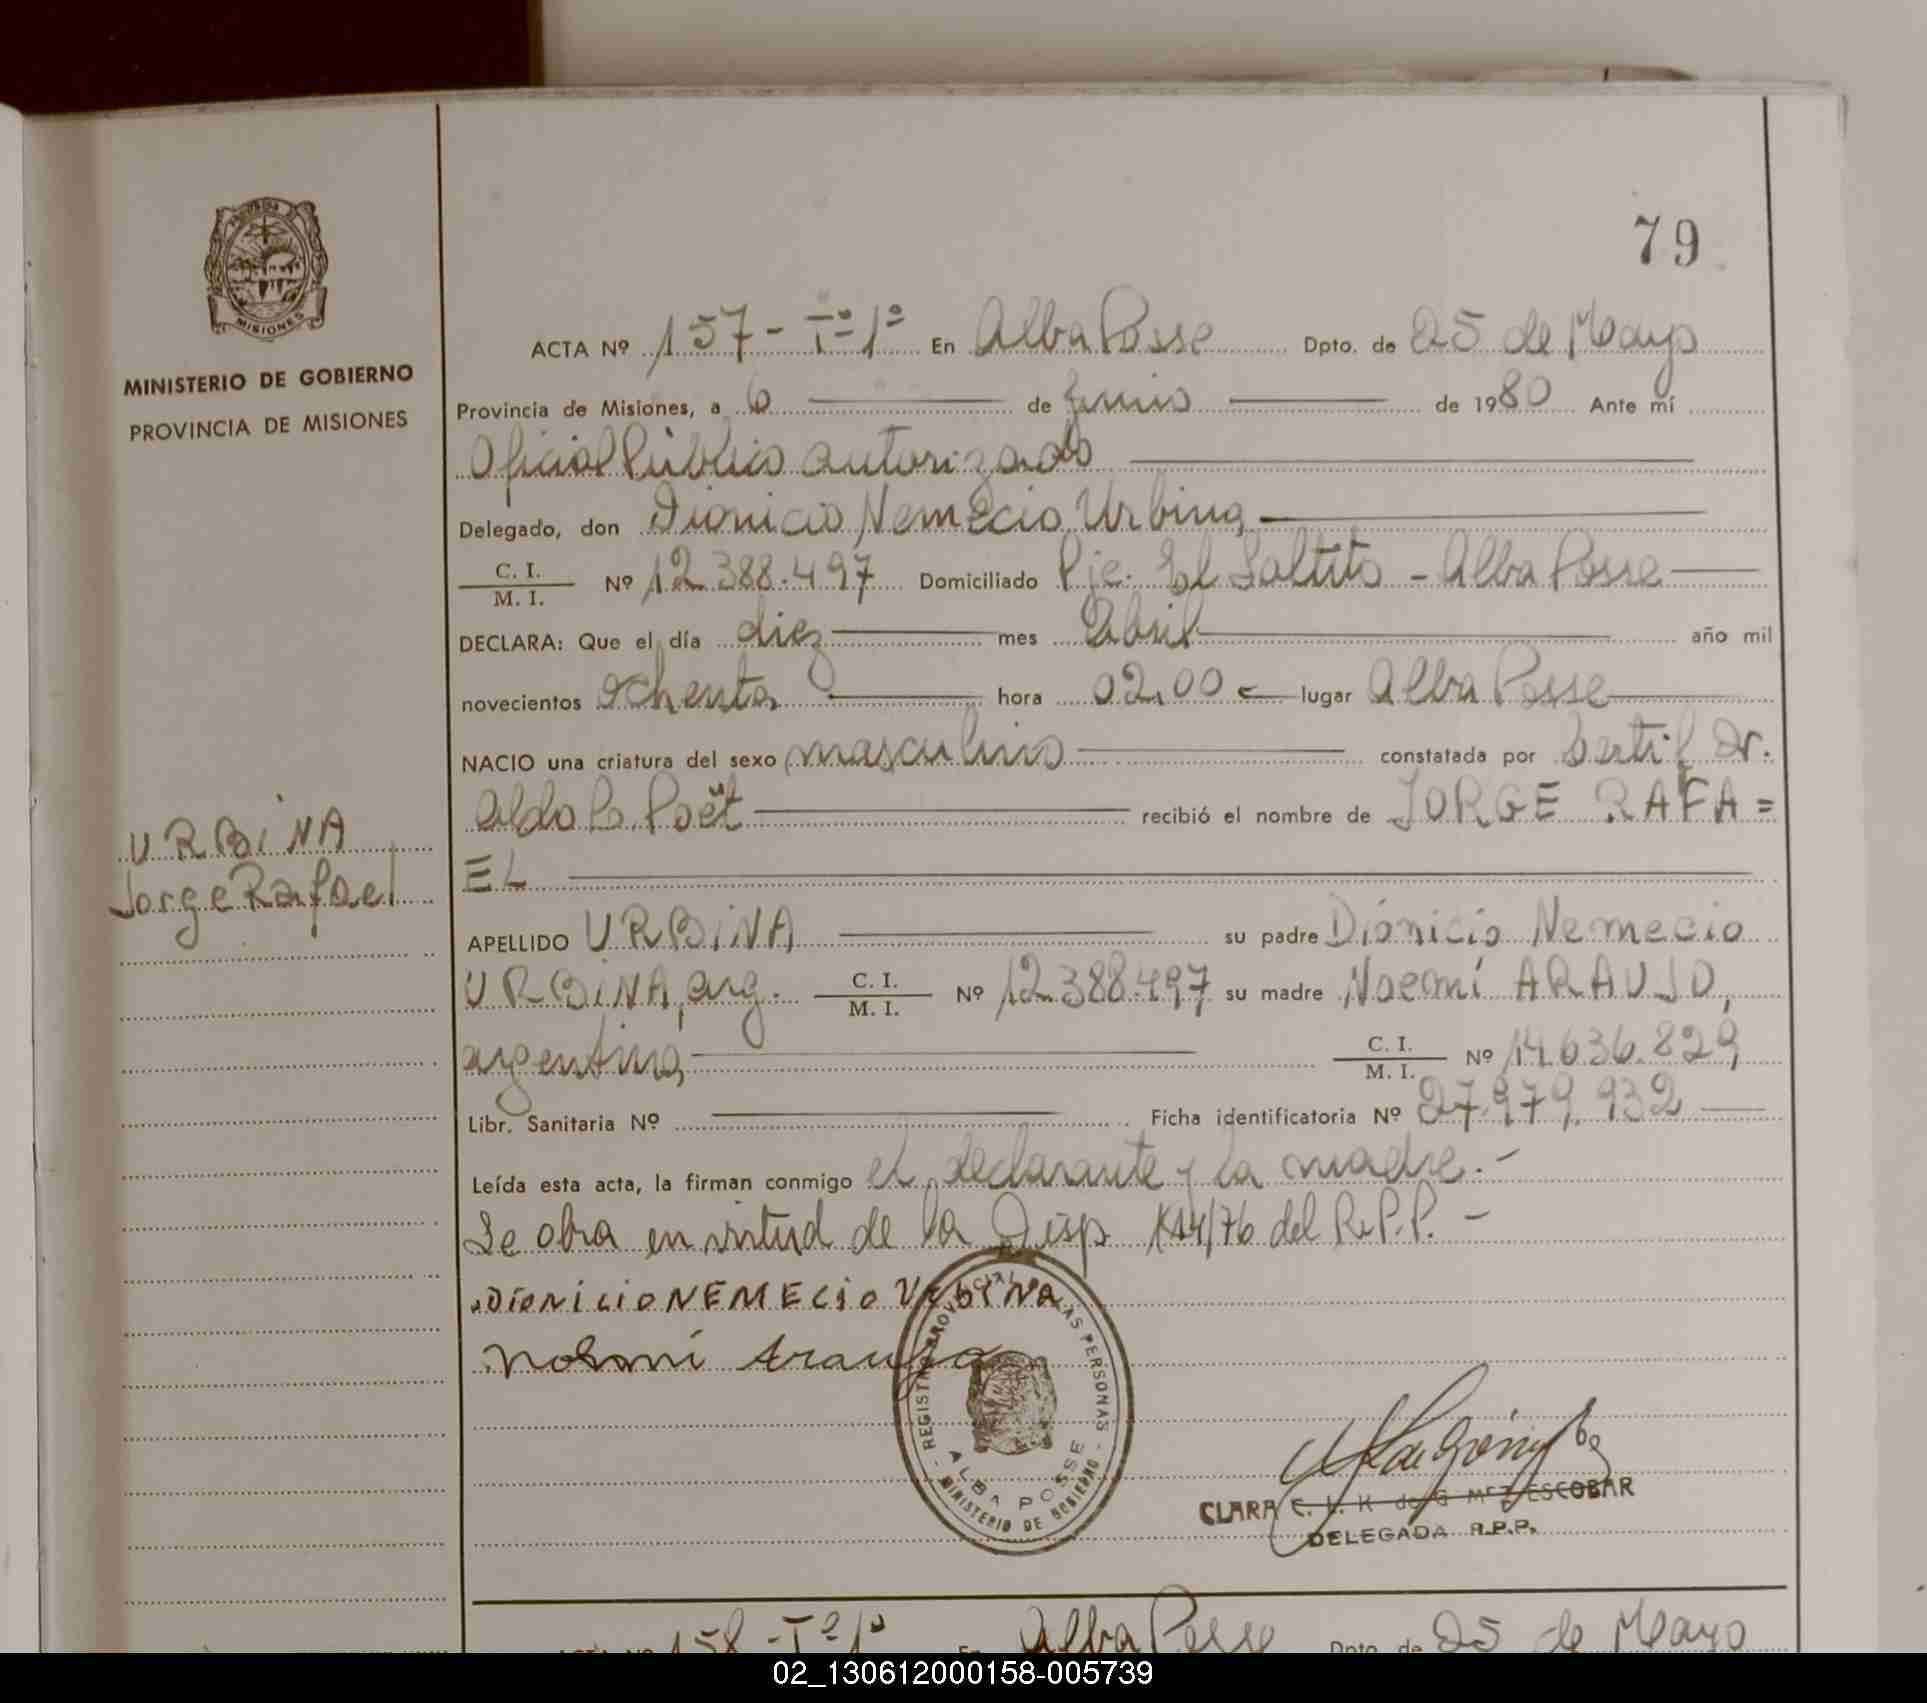 79
MISIONES
MINISTERIO DE GOBIERNO
PROVINCIA DE MISIONES
URBINA
Jorge Rafael
ACTA Nº 157 - Tº 1º En Alba Posse Dpto. de 25 de Mayo
Provincia de Misiones, a 6 de Junio de 1980 Ante mí
Oficial Público autorizado
Delegado, don Dionicio Nemecio Urbina
C. I. / M. I. Nº 12.388.497 Domiciliado Pje. El Saltito - Alba Posse
DECLARA: Que el día diez mes Abril año mil
novecientos ochenta hora 02.00 lugar Alba Posse
NACIO una criatura del sexo masculino constatada por Certif Dr.
Aldo Poët recibió el nombre de JORGE RAFA=
EL
APELLIDO URBINA su padre Dionicio Nemecio
URBINA, arg. C. I. / M. I. Nº 12.388.497 su madre Noemí ARAUJO,
argentina C. I. / M. I. Nº 14.636.829
Libr. Sanitaria Nº Ficha identificatoria Nº 27.979.932
Leída esta acta, la firman conmigo el declarante y la madre.-
Se obra en virtud de la Disp 14/76 del R.P.P. -
DIONICIO NEMECIO URBINA
Noemí Araujo
REGISTRO PROVINCIAL DE LAS PERSONAS
ALBA POSSE
MINISTERIO DE GOBIERNO
CLARA C. ESCOBAR
DELEGADA R.P.P.
ACTA Nº 158 - Tº 1º En Alba Posse Dpto. de 25 de Mayo
02_130612000158-005739